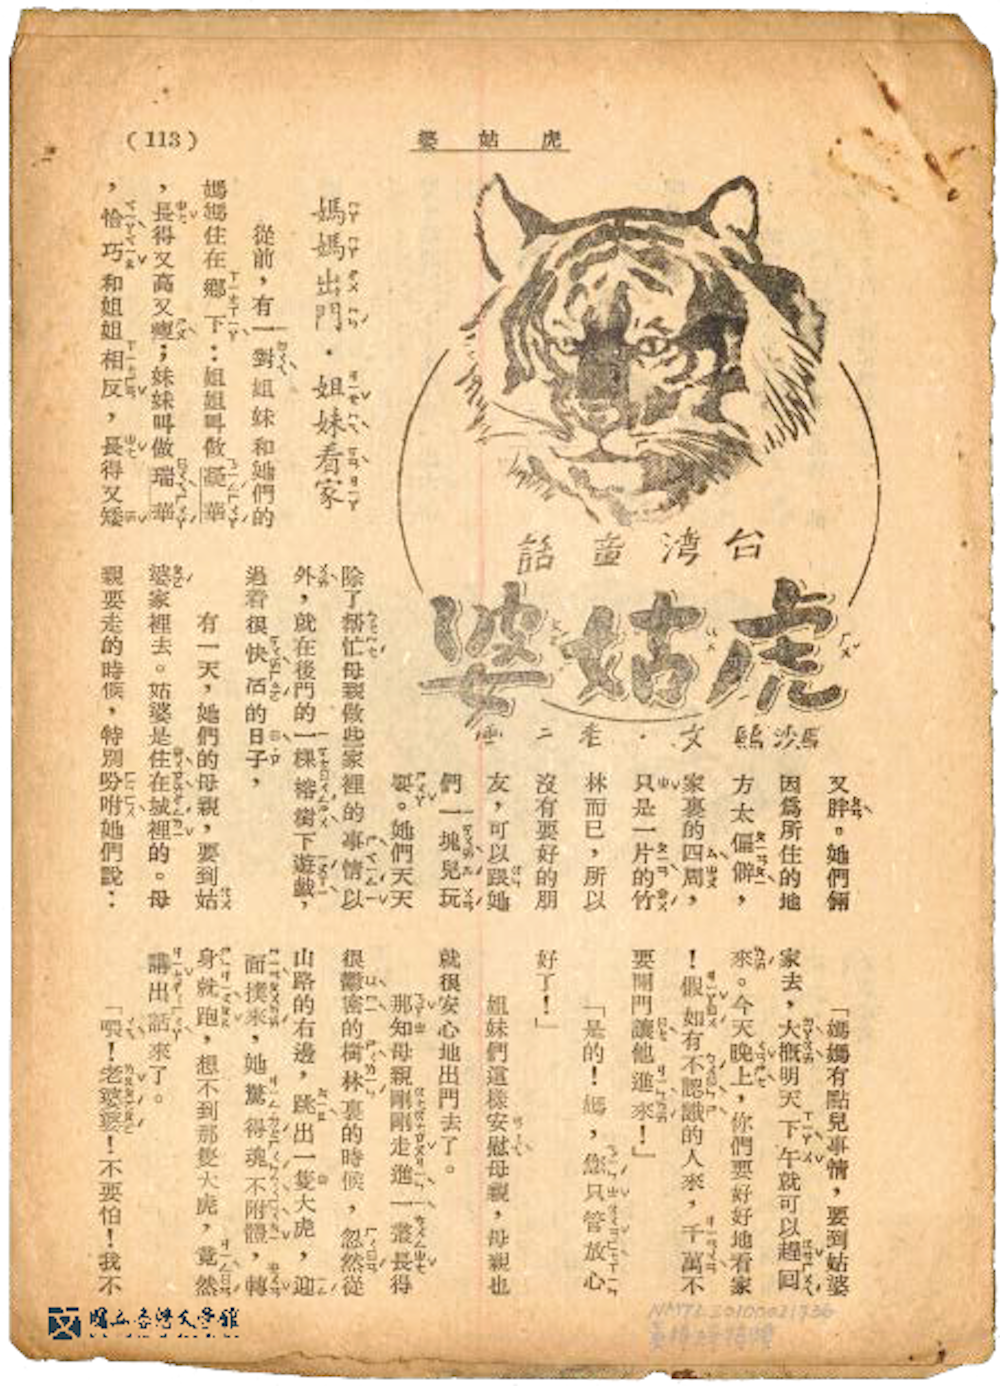 (113)
虎姑婆
台湾童話
虎姑婆
馬沙鷗 文・老二 画
媽媽出門・姐妹看家
從前，有一對姐妹和她們的
媽媽住在鄉下：姐姐叫做凝華
，長得又高又瘦；妹妹叫做瑞華
，恰巧和姐姐相反，長得又矮
又胖。她們倆
因爲所住的地
方太偏僻，
家裏的四周，
只是一片的竹
林而已，所以
沒有要好的朋
友，可以跟她
們一塊兒玩
耍。她們天天
除了幫忙母親做些家裡的事情以
外，就在後門的一棵榕樹下遊戲，
過着很快活的日子，
有一天，她們的母親，要到姑
婆家裡去。姑婆是住在城裡的。母
親要走的時候，特別吩咐她們說：
「媽媽有點兒事情，要到姑婆
家去，大槪明天下午就可以趕囘
來。今天晚上，你們要好好地看家
！假如有不認識的人來，千萬不
要開門讓他進來！」
「是的！媽，您只管放心
好了！」
姐妹們這樣安慰母親，母親也
就很安心地出門去了。
那知母親剛剛走進一叢長得
很鬱密的樹林裏的時候，忽然從
山路的右邊，跳出一隻大虎，迎
面撲來，她驚得魂不附體，轉
身就跑，想不到那隻大虎，竟然
講出話來了。
「喂！老婆婆！不要怕！我不
國立台灣文學館
NMTL20100021736